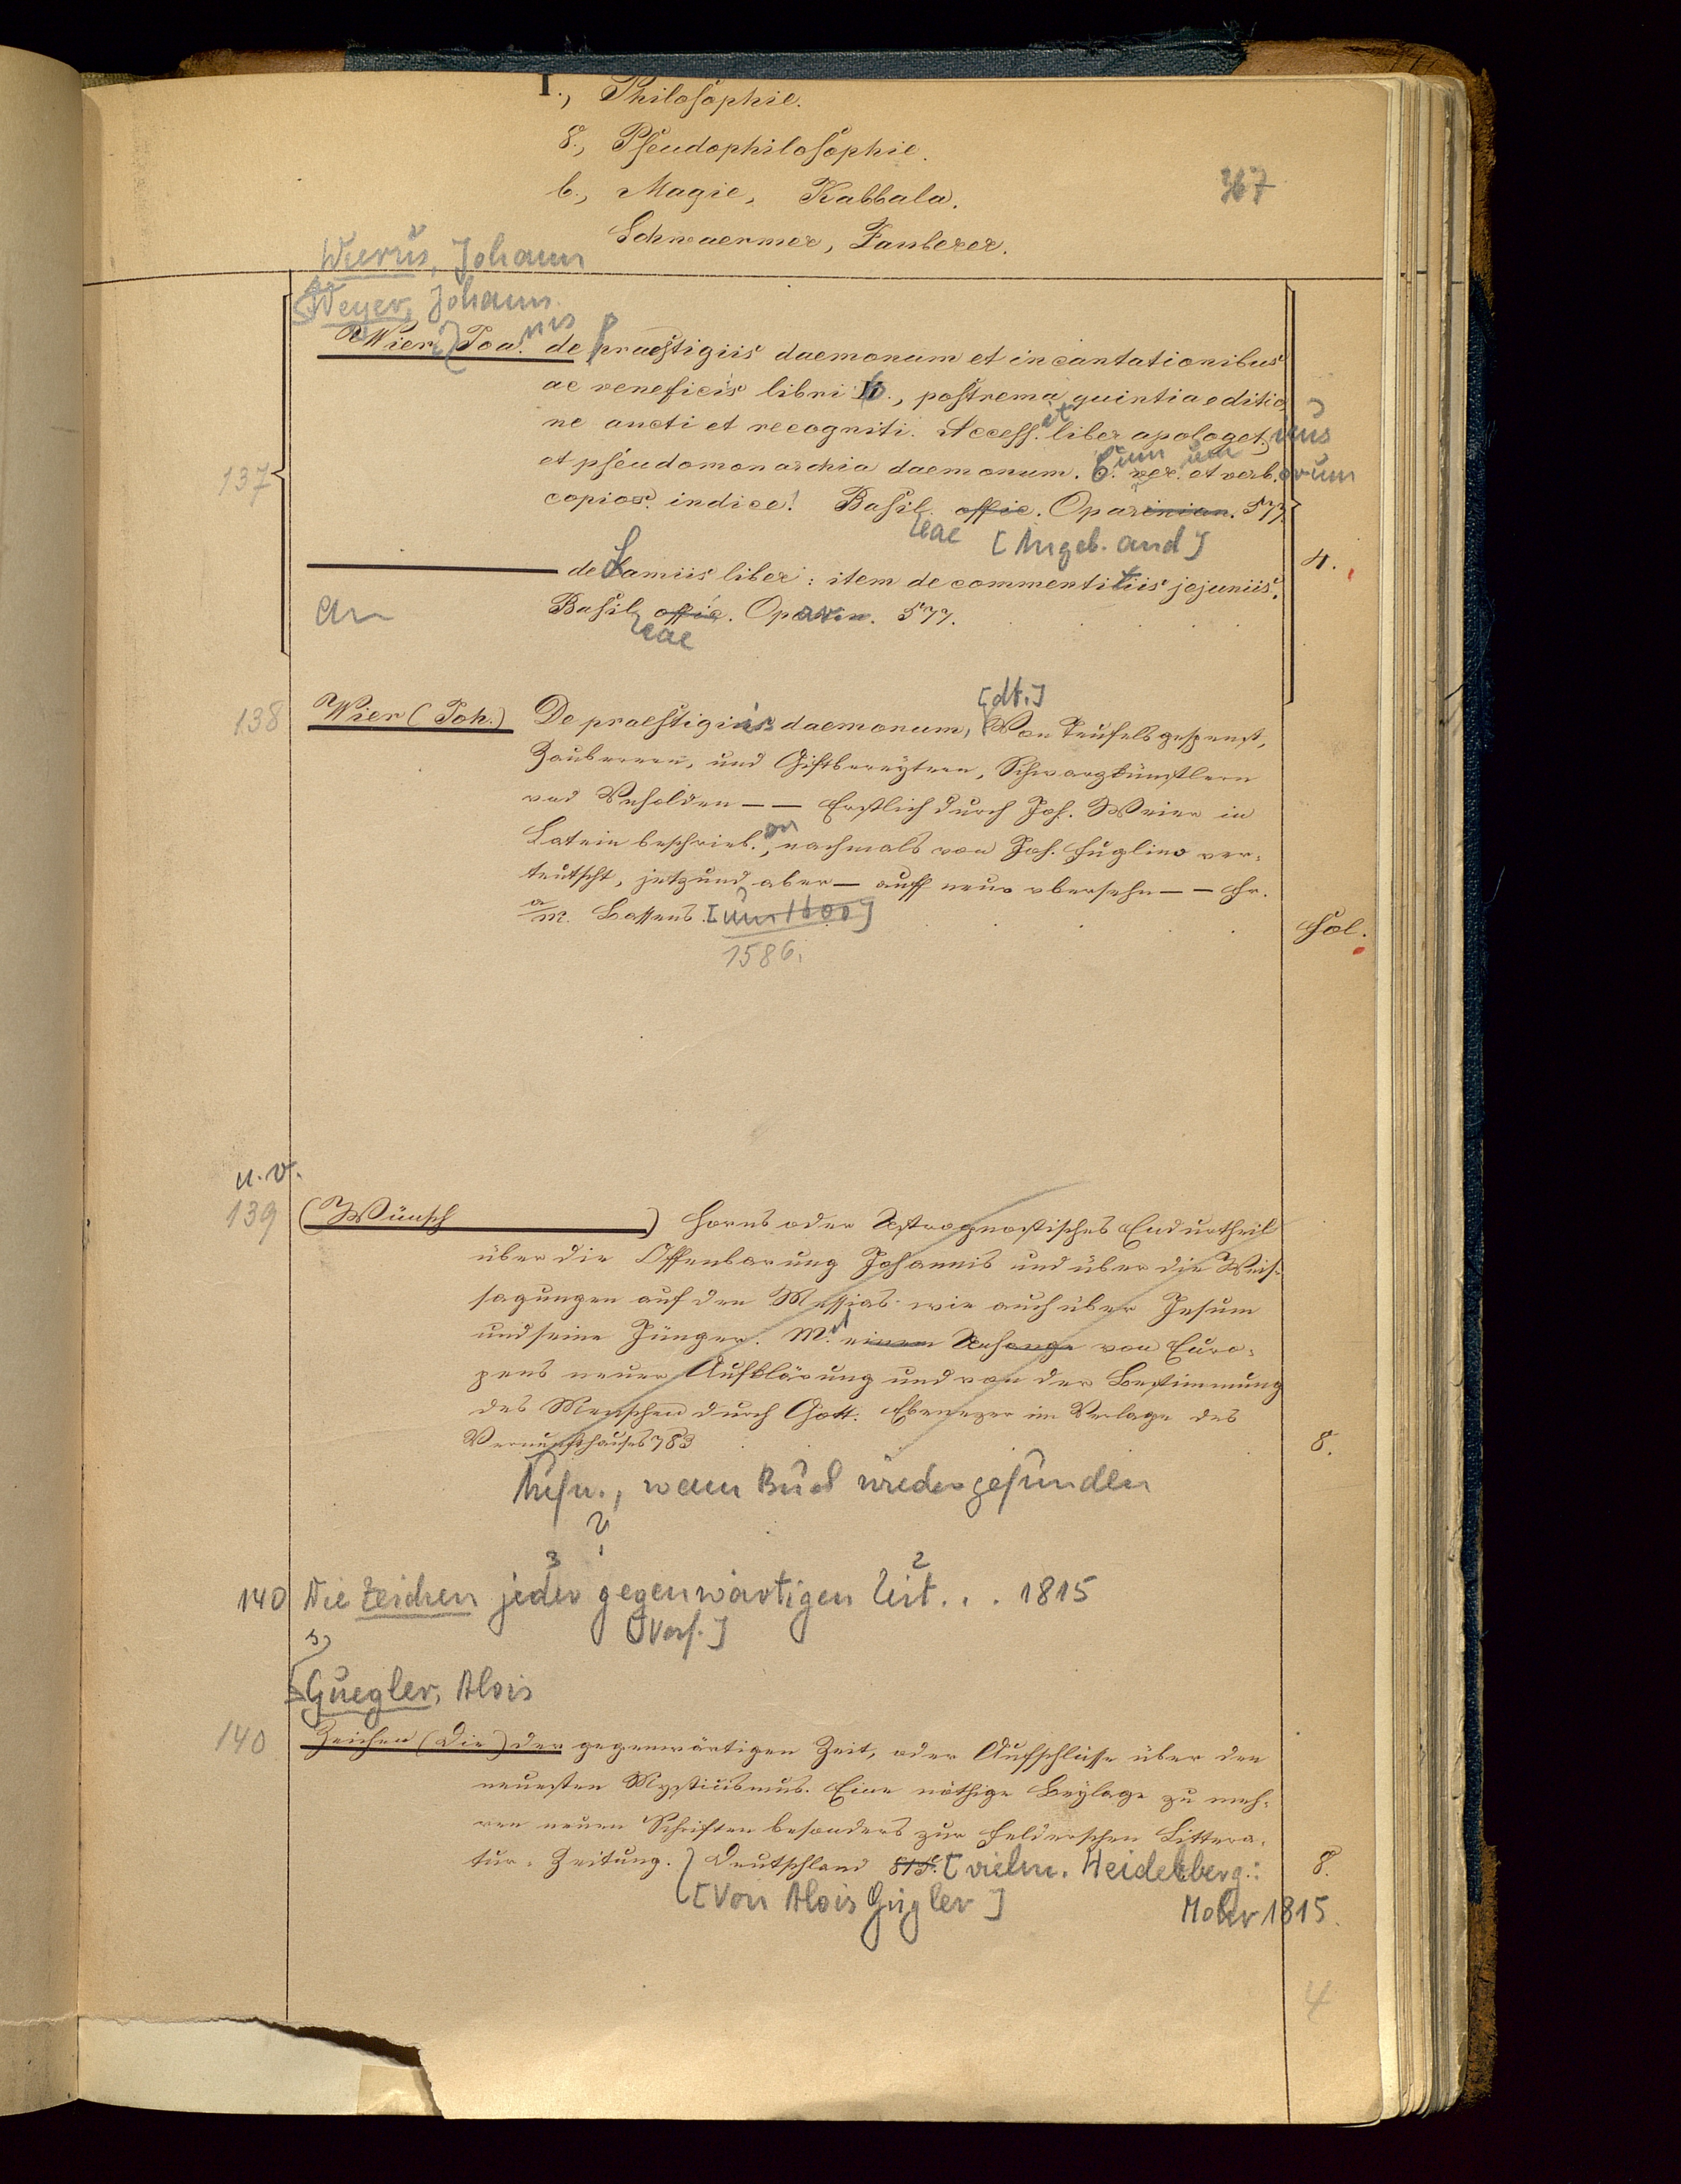 I., Philosophie.
8., Pseudophilosophie.
b., Magie, Kabbala.
367
Schwaermer, Zauberer.
Wierus, Johann
Weyer, Johann
137
Wier (Joa.nnis de praestigiis daemonum et incantationibus
ac veneficiis libri 6., postrema quinta editio
ne aucti et recogniti. Access. et liber apologet.icus
et pseudomonarchia daemonum. Cum rer.um et verb.orum
copios. indice! Basileae offic. Oparinian. 577.
[Angeb. and]
4.
de Lamiis liber: item de commentitiis jejuniis.
an
Basileae offic. Oparin. 577.
138
Wier (Joh.) De praestigiis daemonum, [dt.] Von Teufelsgespenst,
Zauberern, und Giftbereytern, Schwarzkünstlern
und Unholden – – Erstlich durch Joh. Weier in
Latein beschrieb.en, nachmals von Joh. Fuglino ver-
teutscht, jetzund aber – auff neue obersehn – – Fr.
a/m. Bassens. [um 1600]
Fol.
1586.
u. v.
139
(Wünsch ) Horus oder Astrognostisches Endurtheil
über die Offenbarung Johannis und über die Weis-
sagungen auf den Messias wie auch über Jesum
und seine Jünger. M. einem Anhange von Euro-
pens neuer Aufklärung und von der Bestimmung
des Menschen durch Gott. Ebenezer im Verlage des
Vernunfthauses 783
8.
Aufn., wenn Buch wiedergefunden
?
3 1 2
140 Die Zeichen jeder gegenwärtigen Zeit... 1815
[Verf.]
Guegler, Alois
140
Zeichen (Die) der gegenwärtigen Zeit, oder Aufschlüsse über den
neuesten Mysticismus. Eine nöthige Beylage zu meh-
ren neuen Schriften besonders zur Felderschen Littera-
tur-Zeitung. Deutschland 815. [vielm. Heidelberg:
8.
[Von Alois Gügler]
Mohr 1815.
4